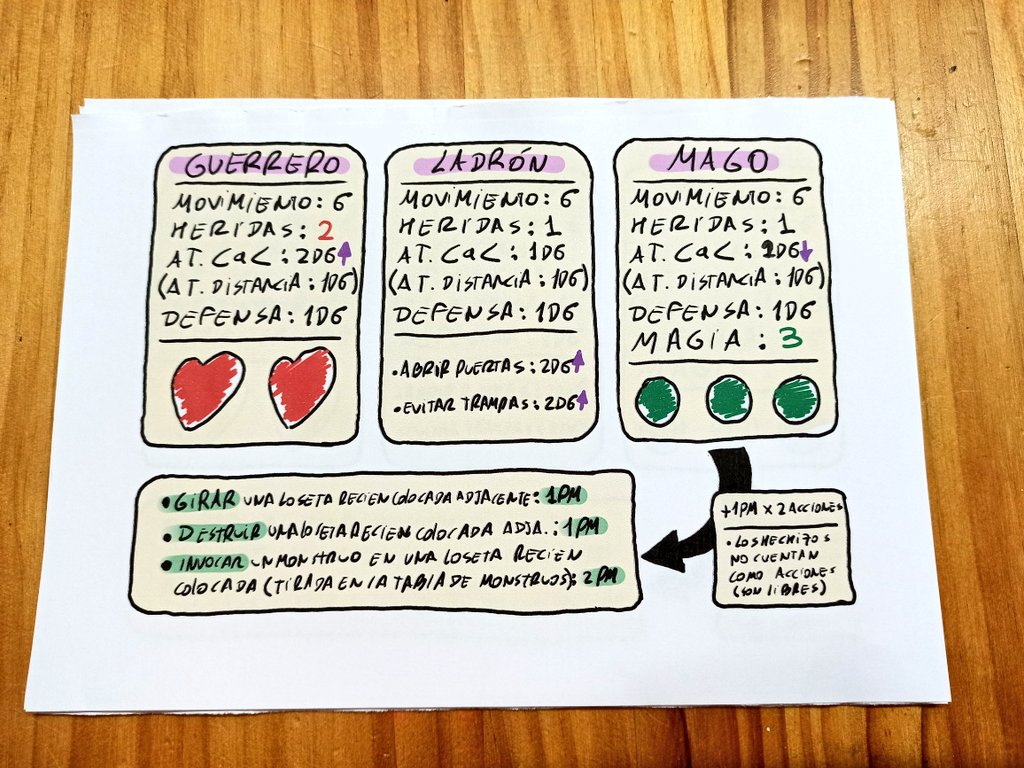 GUERRERO
MOVIMIENTO: 6
HERIDAS: 2
AT. CaC: 2D6↑
(AT. DISTANCIA: 1D6)
DEFENSA: 1D6
LADRÓN
MOVIMIENTO: 6
HERIDAS: 1
AT. CaC: 1D6
(AT. DISTANCIA: 1D6)
DEFENSA: 1D6
•ABRIR PUERTAS: 2D6↑
•EVITAR TRAMPAS: 2D6↑
MAGO
MOVIMIENTO: 6
HERIDAS: 1
AT. CaC: 2D6↓
(AT. DISTANCIA: 1D6)
DEFENSA: 1D6
MAGIA: 3
•GIRAR UNA LOSETA RECIEN COLOCADA ADJACENTE: 1PM
•DESTRUIR UNA LOSETA RECIEN COLOCADA ADJA.: 1PM
•INVOCAR UN MONSTRUO EN UNA LOSETA RECIEN
COLOCADA (TIRADA EN LA TABLA DE MONSTRUOS): 2PM
+1PM X 2 ACCIONES
•LOS HECHIZOS
NO CUENTAN
COMO ACCIONES
(SON LIBRES)